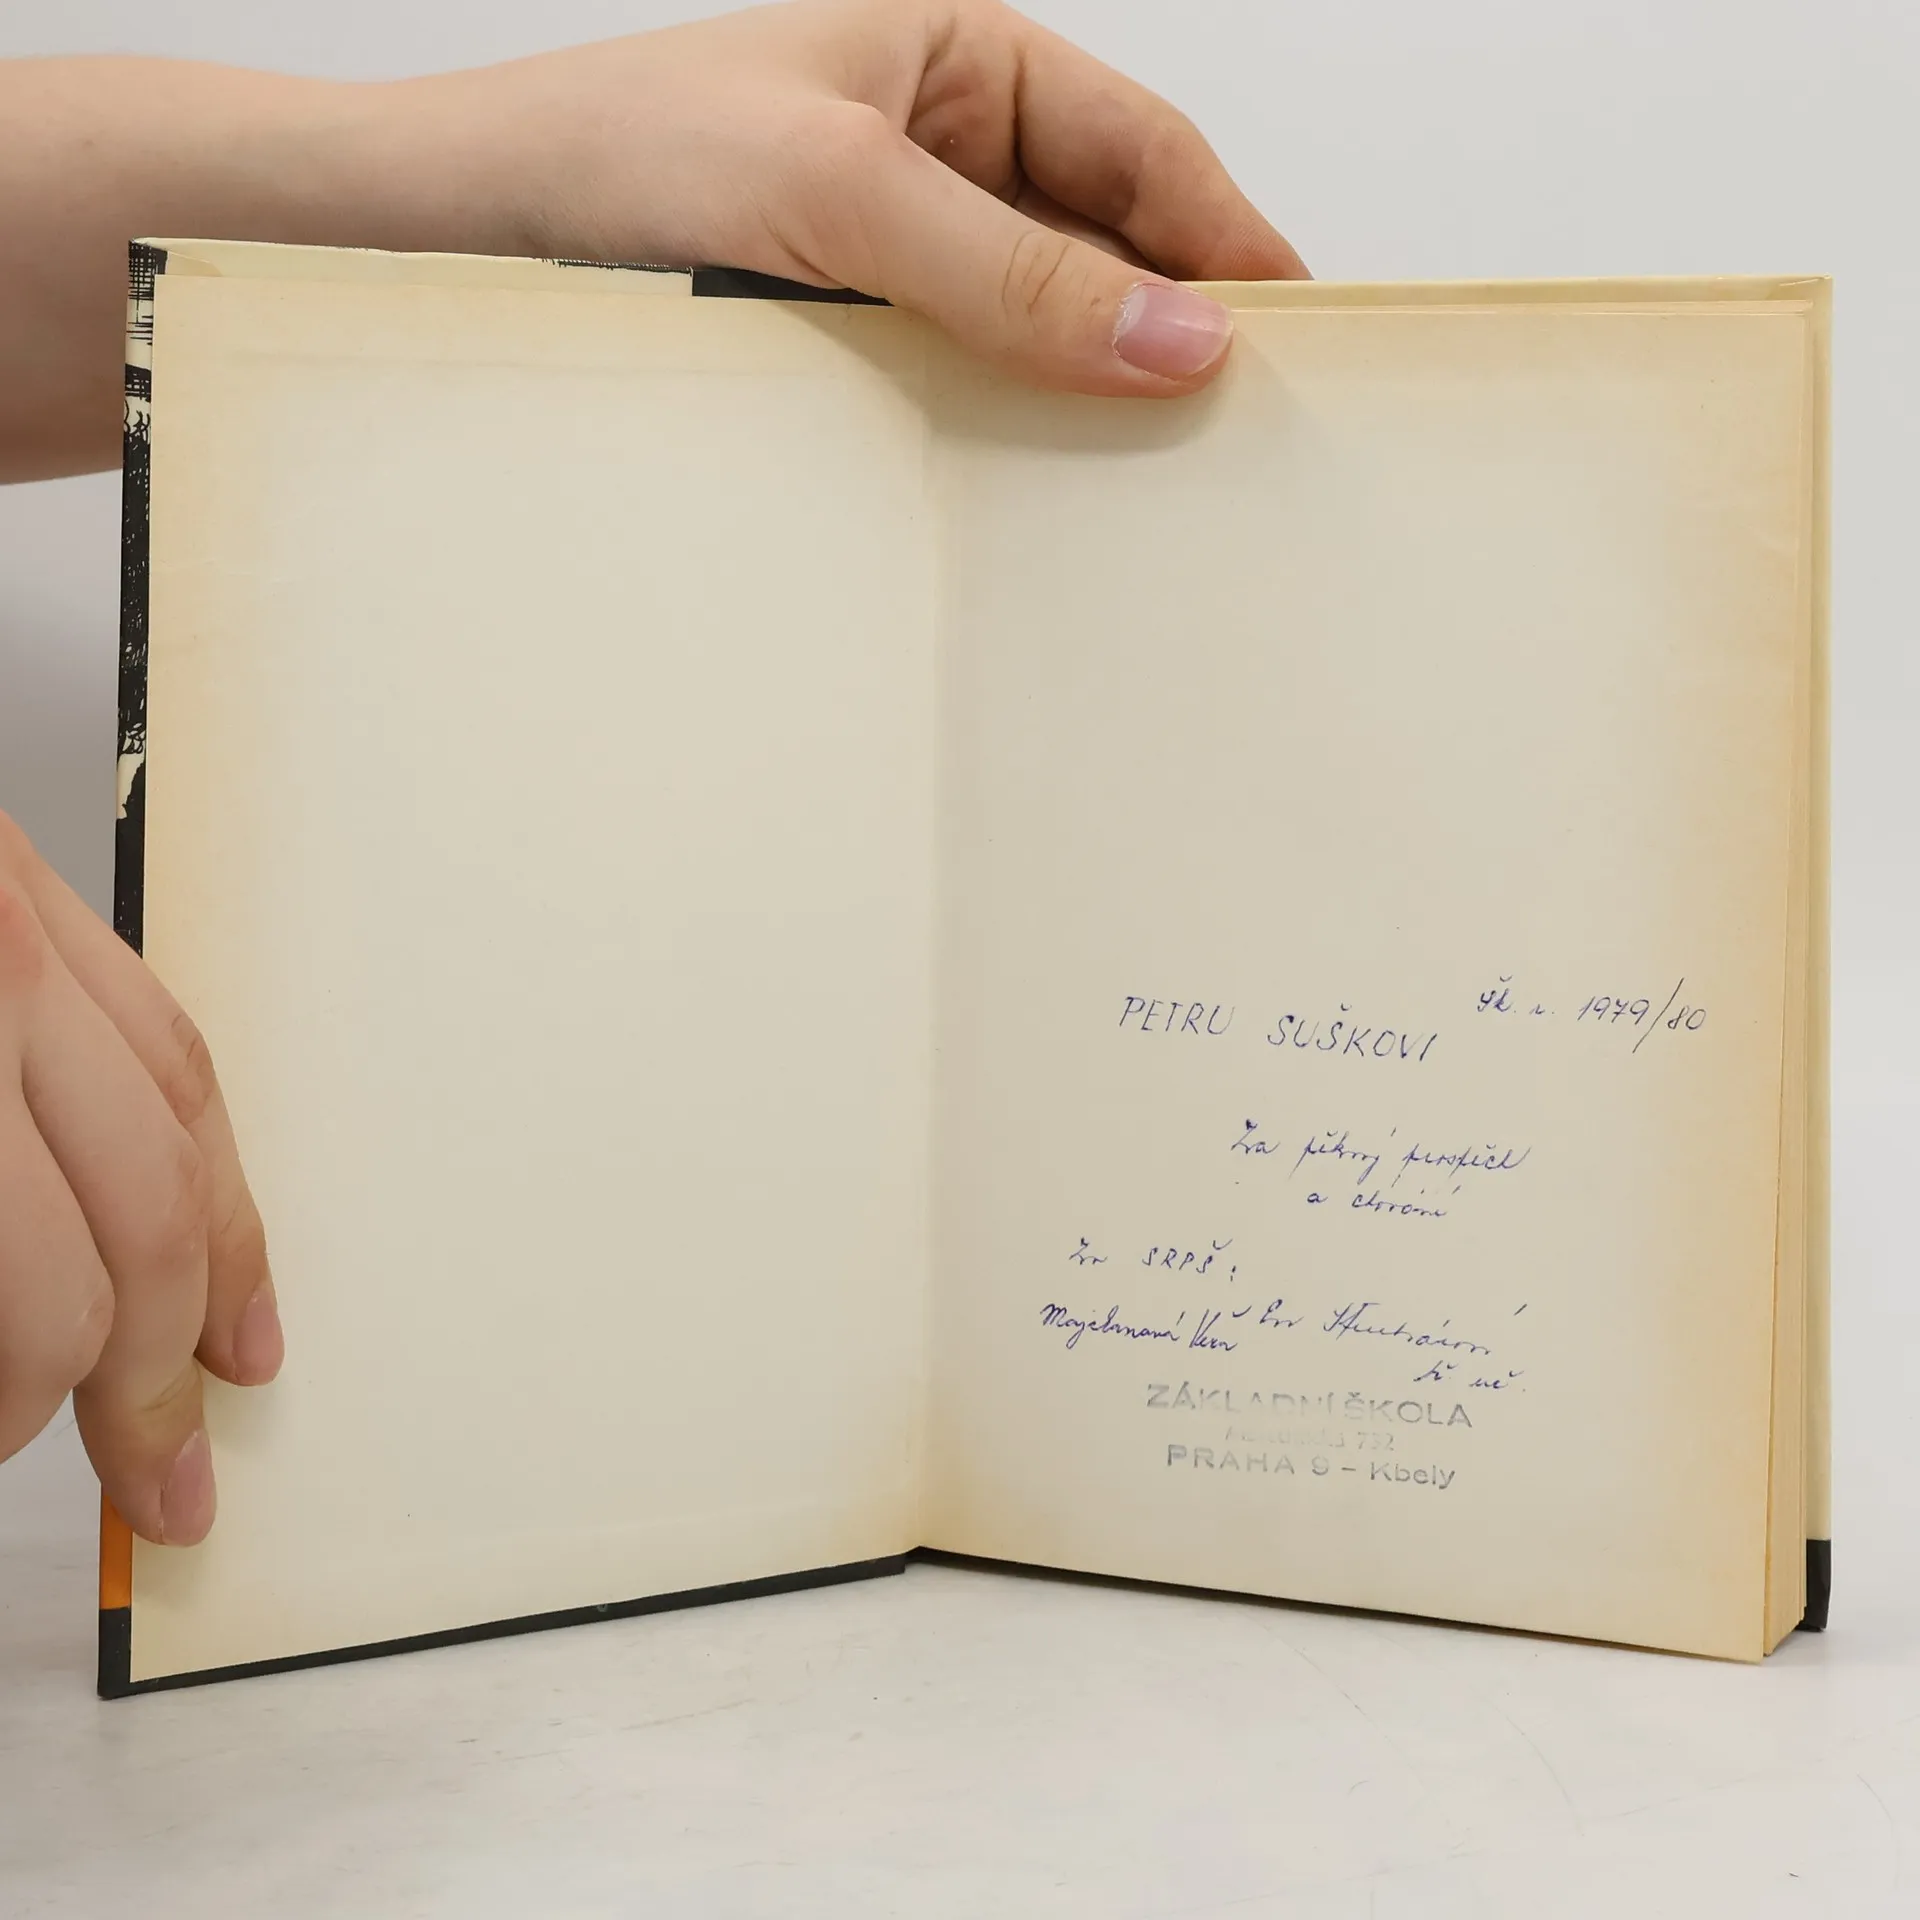 PETRU SUŠKOVI
Šk. r. 1979/80
Za pěkný prospěch
a chování
Za SRPŠ:
Majchrnová Věra
tř. uč.
ZÁKLADNÍ ŠKOLA
732
PRAHA 9 - Kbely